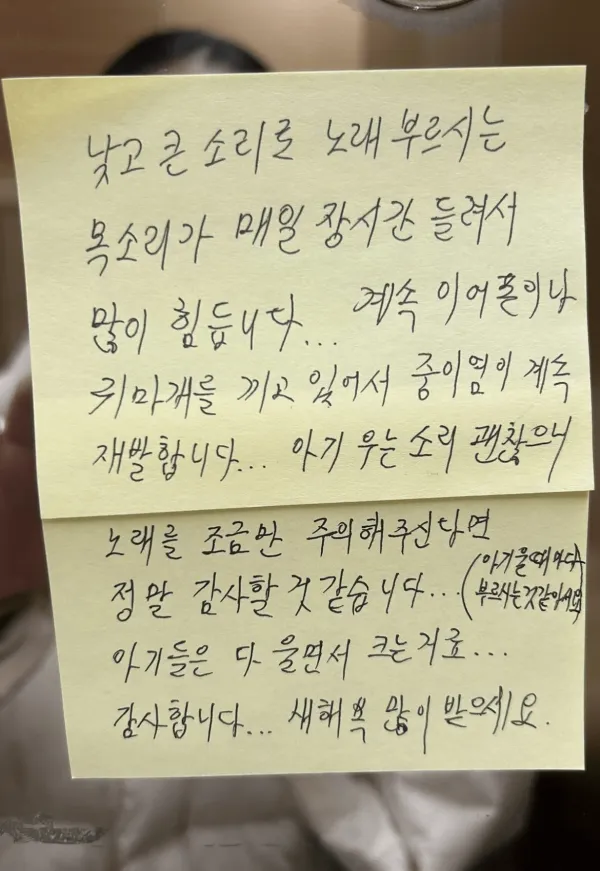 낮고 큰 소리로 노래 부르시는
목소리가 매일 장시간 들려서
많이 힘듭니다... 계속 이어폰이나
귀마개를 끼고 있어서 중이염이 계속
재발합니다... 아기 우는 소리 괜찮으니
노래를 조금만 주의해주신다면
정말 감사할 것 같습니다... (아기 울때마다
부르시는것같아서요)
아기들은 다 울면서 크는거죠...
감사합니다... 새해 복 많이 받으세요.